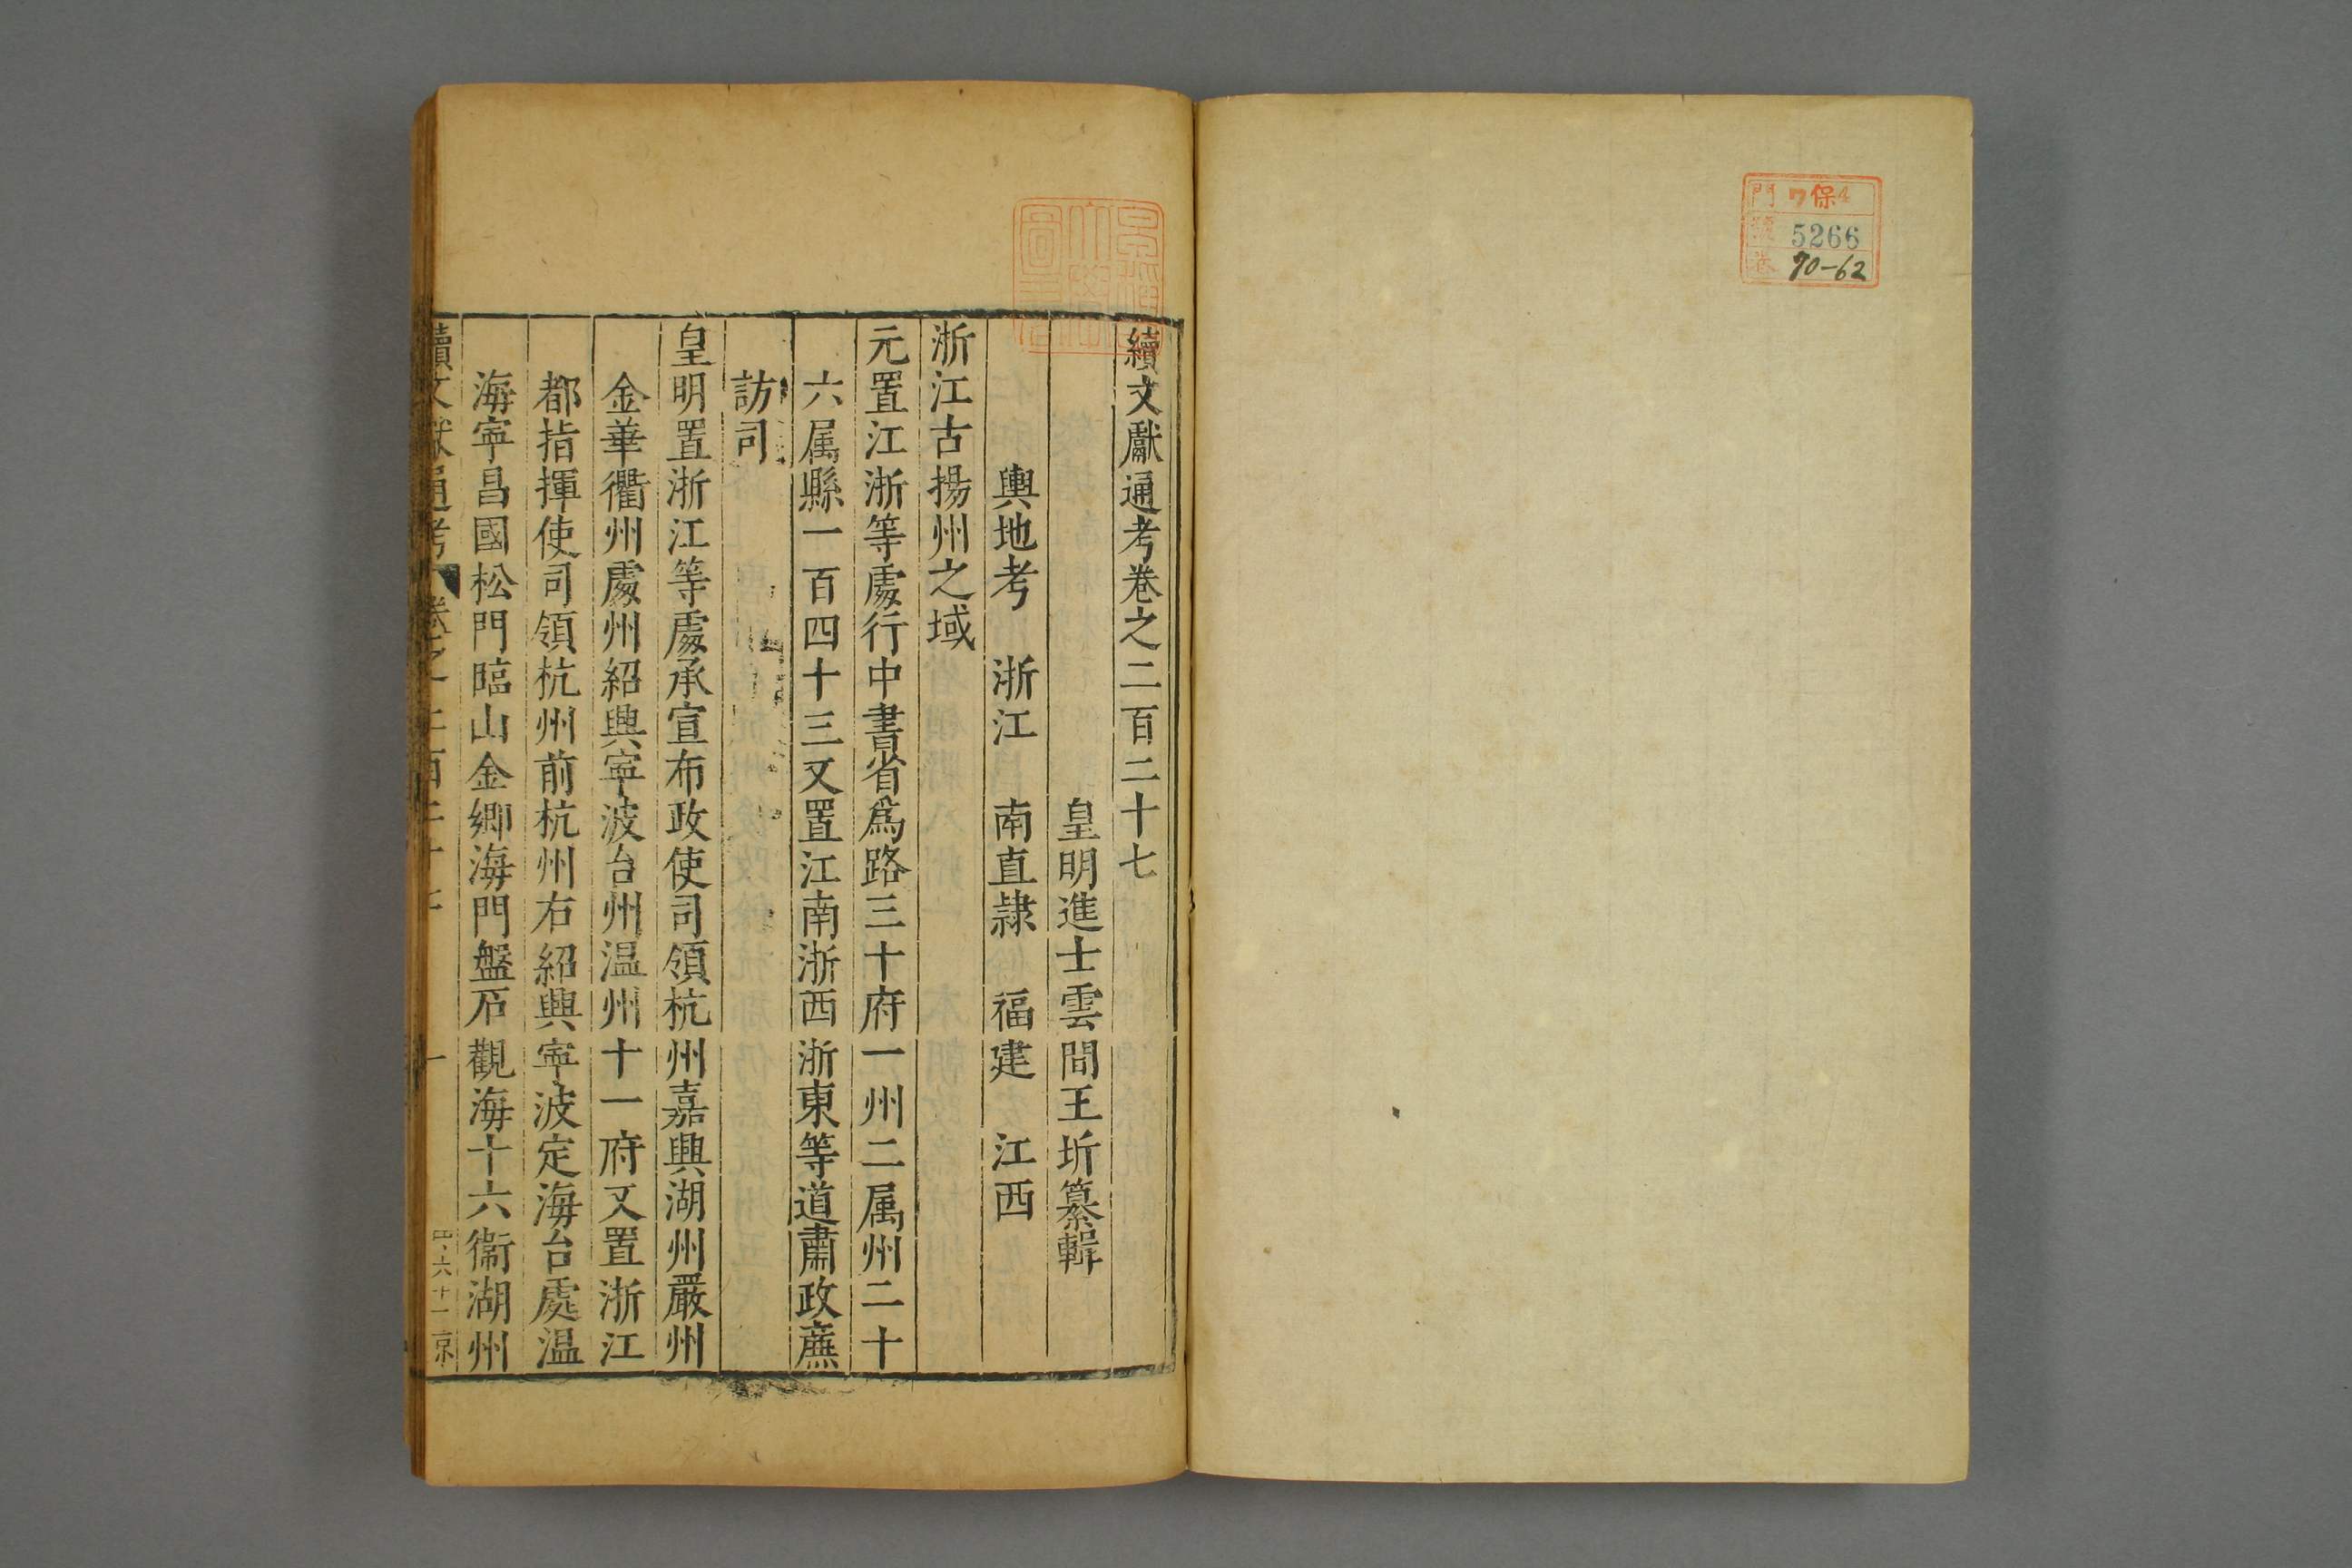 門 ワ保4
號 5266
巻 70-62
續文獻通考卷之二百二十七
皇明進士雲間王圻纂輯
輿地考 浙江 南直隷 福建 江西
浙江古揚州之域
元置江浙等處行中書省爲路三十府一州二属州二十
六属縣一百四十三又置江南浙西浙東等道肅政亷
訪司
皇明置浙江等處承宣布政使司領杭州嘉興湖州嚴州
金華衢州處州紹興寧波台州温州十一府又置浙江
都指揮使司領杭州前杭州右紹興寧波定海台處温
海寧昌國松門臨山金鄉海門盤石觀海十六衞湖州
續文獻通考 卷之二百二十七 一